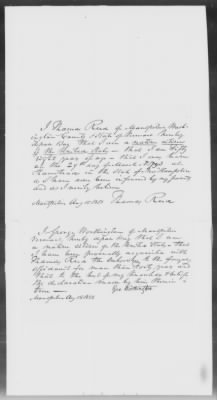 I Thomas Reed of Montpelier Wash-
ington County & State of Vermont hereby
depose & say that I am a native citizen
of the United States - that I am fifty
eight years of age - that I was born
on the 29th day of
in the State of New Hampshire
as I have ever been informed by my parents
and as I verily believe
Montpelier Aug 15. 1851. Thomas Reed
I George Worthington of Montpelier
Vermont, hereby depose & say that I am
a native citizen of the United States - that
I have been personally acquainted with
Thomas Reed the subscriber to the foregoing
affidavit for more than years and
that to the best of my knowledge & belief
the declaration made by him therein is
true
Geo Worthington
Montpelier Aug 15 1851